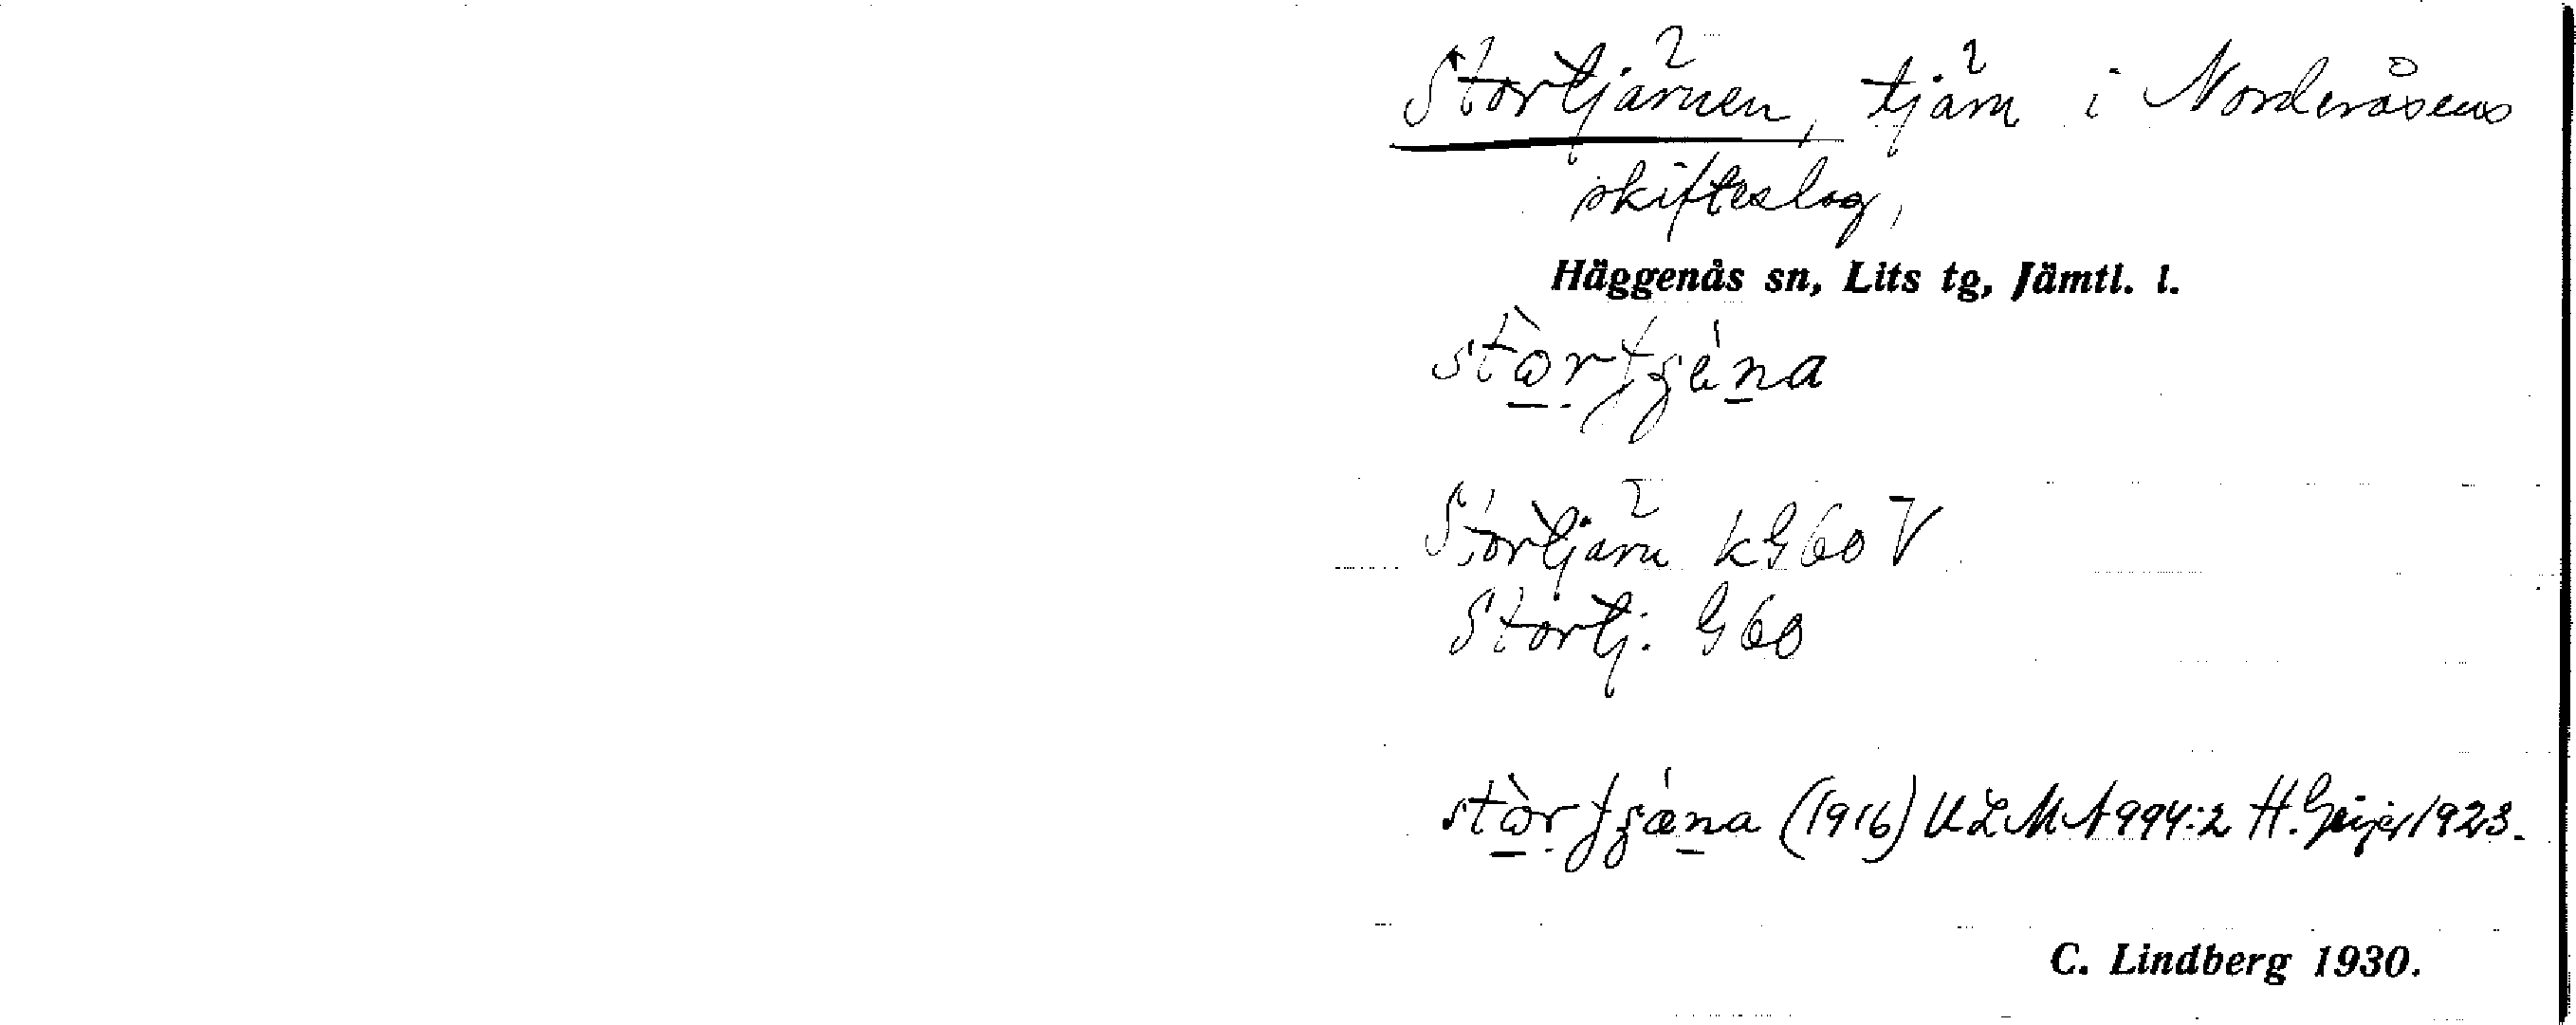 Stortjärnen, tjärn i Norderåsens
skifteslag,
Häggenås sn, Lits tg, Jämtl. l.
Stortjärn kG60V
Stortj. G60
(1916) ULMA 994:2 H. Geijer 1923.
C. Lindberg 1930.